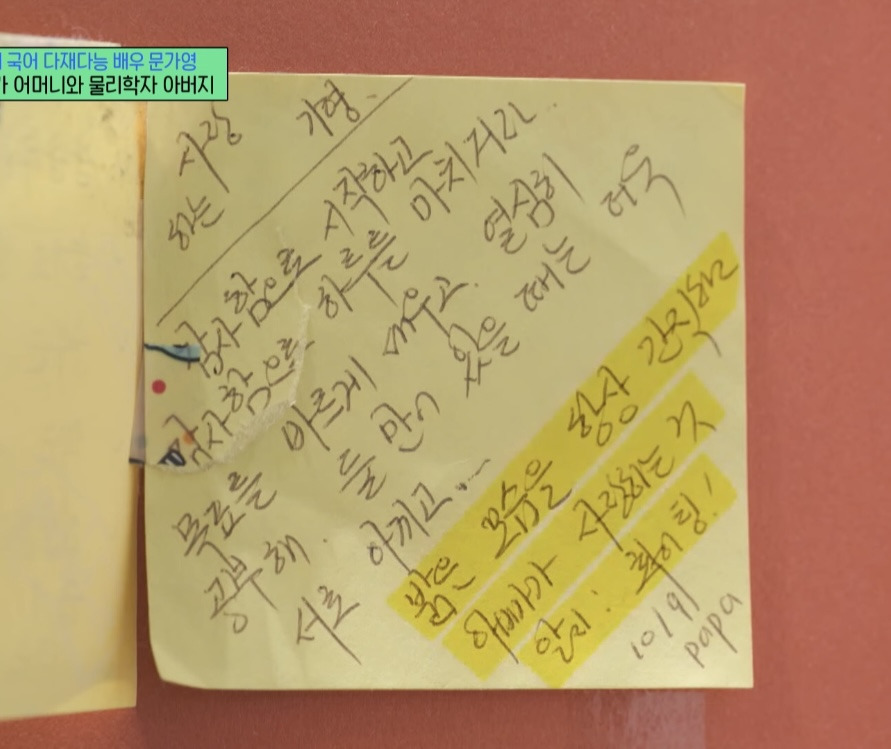 국어 다재다능 배우 문가영
어머니와 물리학자 아버지
사랑
하는 가영.
감사함으로 시작하고
감사함으로 하루를 마치거라..
목표를 바르게 세우고. 열심히
공부해. 둘만이 있을 때는 더욱
서로 아끼고...
밝은 모습을 항상 간직하고
아빠가 사랑하는 것
알지! 화이팅!
10/9
papa